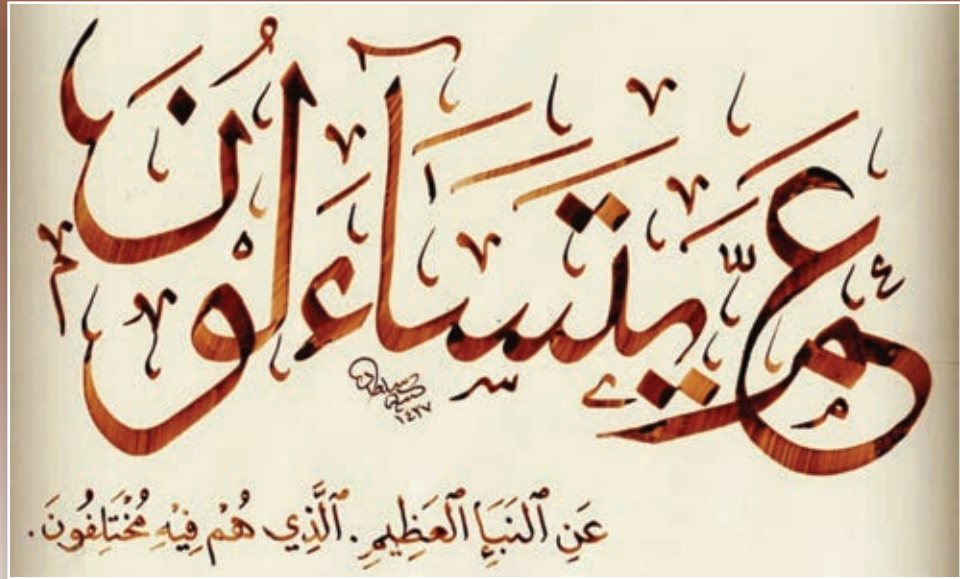 عَمَّ يَتَسَآءَلُونَ
١٤٢٧
عَنِ ٱلنَّبَإِ ٱلْعَظِيمِ. ٱلَّذِي هُمْ فِيْهِ مُخْتَلِفُونَ.